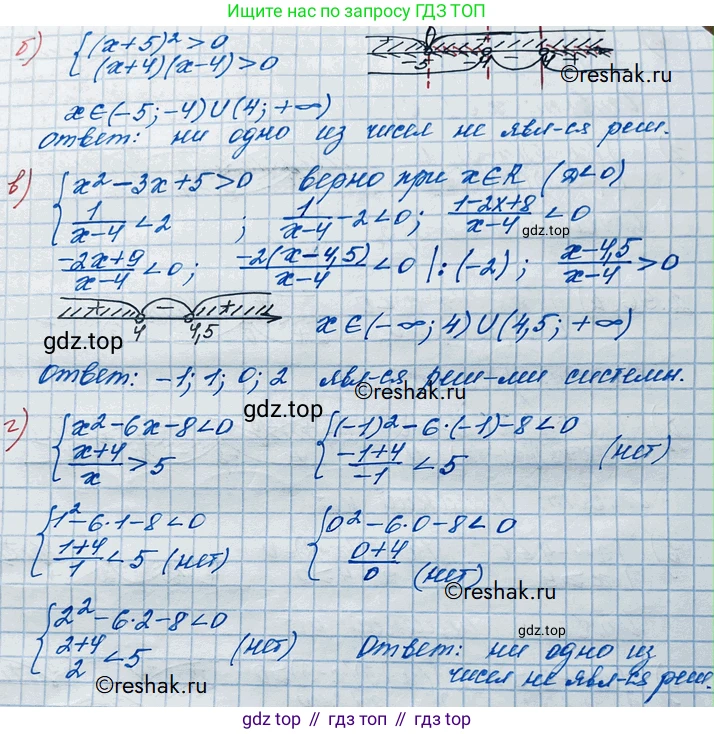 Ищите нас по запросу ГДЗ ТОП
б) { (x+5)² > 0
(x+4)(x-4) > 0
+ -5 -4 - 4 +
©reshak.ru
x∈(-5; -4)∪(4; +∞)
Ответ: ни одно из чисел не явл-ся реш.
в) { x² - 3x + 5 > 0 верно при x∈R (D<0)
1/(x-4) < 2 ; 1/(x-4) - 2 < 0; (1-2x+8)/(x-4) < 0
gdz.top
(-2x+9)/(x-4) < 0; -2(x-4,5)/(x-4) < 0 |:(-2); (x-4,5)/(x-4) > 0
+ 4 - 4,5 +
gdz.top
x∈(-∞; 4)∪(4,5; +∞)
Ответ: -1; 1; 0; 2 явл-ся реш-ми системы.
©reshak.ru
gdz.top
г) { x² - 6x - 8 < 0
(x+4)/x > 5
{ (-1)² - 6·(-1) - 8 < 0
(-1+4)/(-1) < 5 (нет)
{ 1² - 6·1 - 8 < 0
(1+4)/1 < 5 (нет)
{ 0² - 6·0 - 8 < 0
(0+4)/0 (нет)
©reshak.ru
{ 2² - 6·2 - 8 < 0
(2+4)/2 < 5 (нет)
gdz.top
Ответ: ни одно из
чисел не явл-ся реш.
©reshak.ru
gdz top // гдз топ // gdz.top